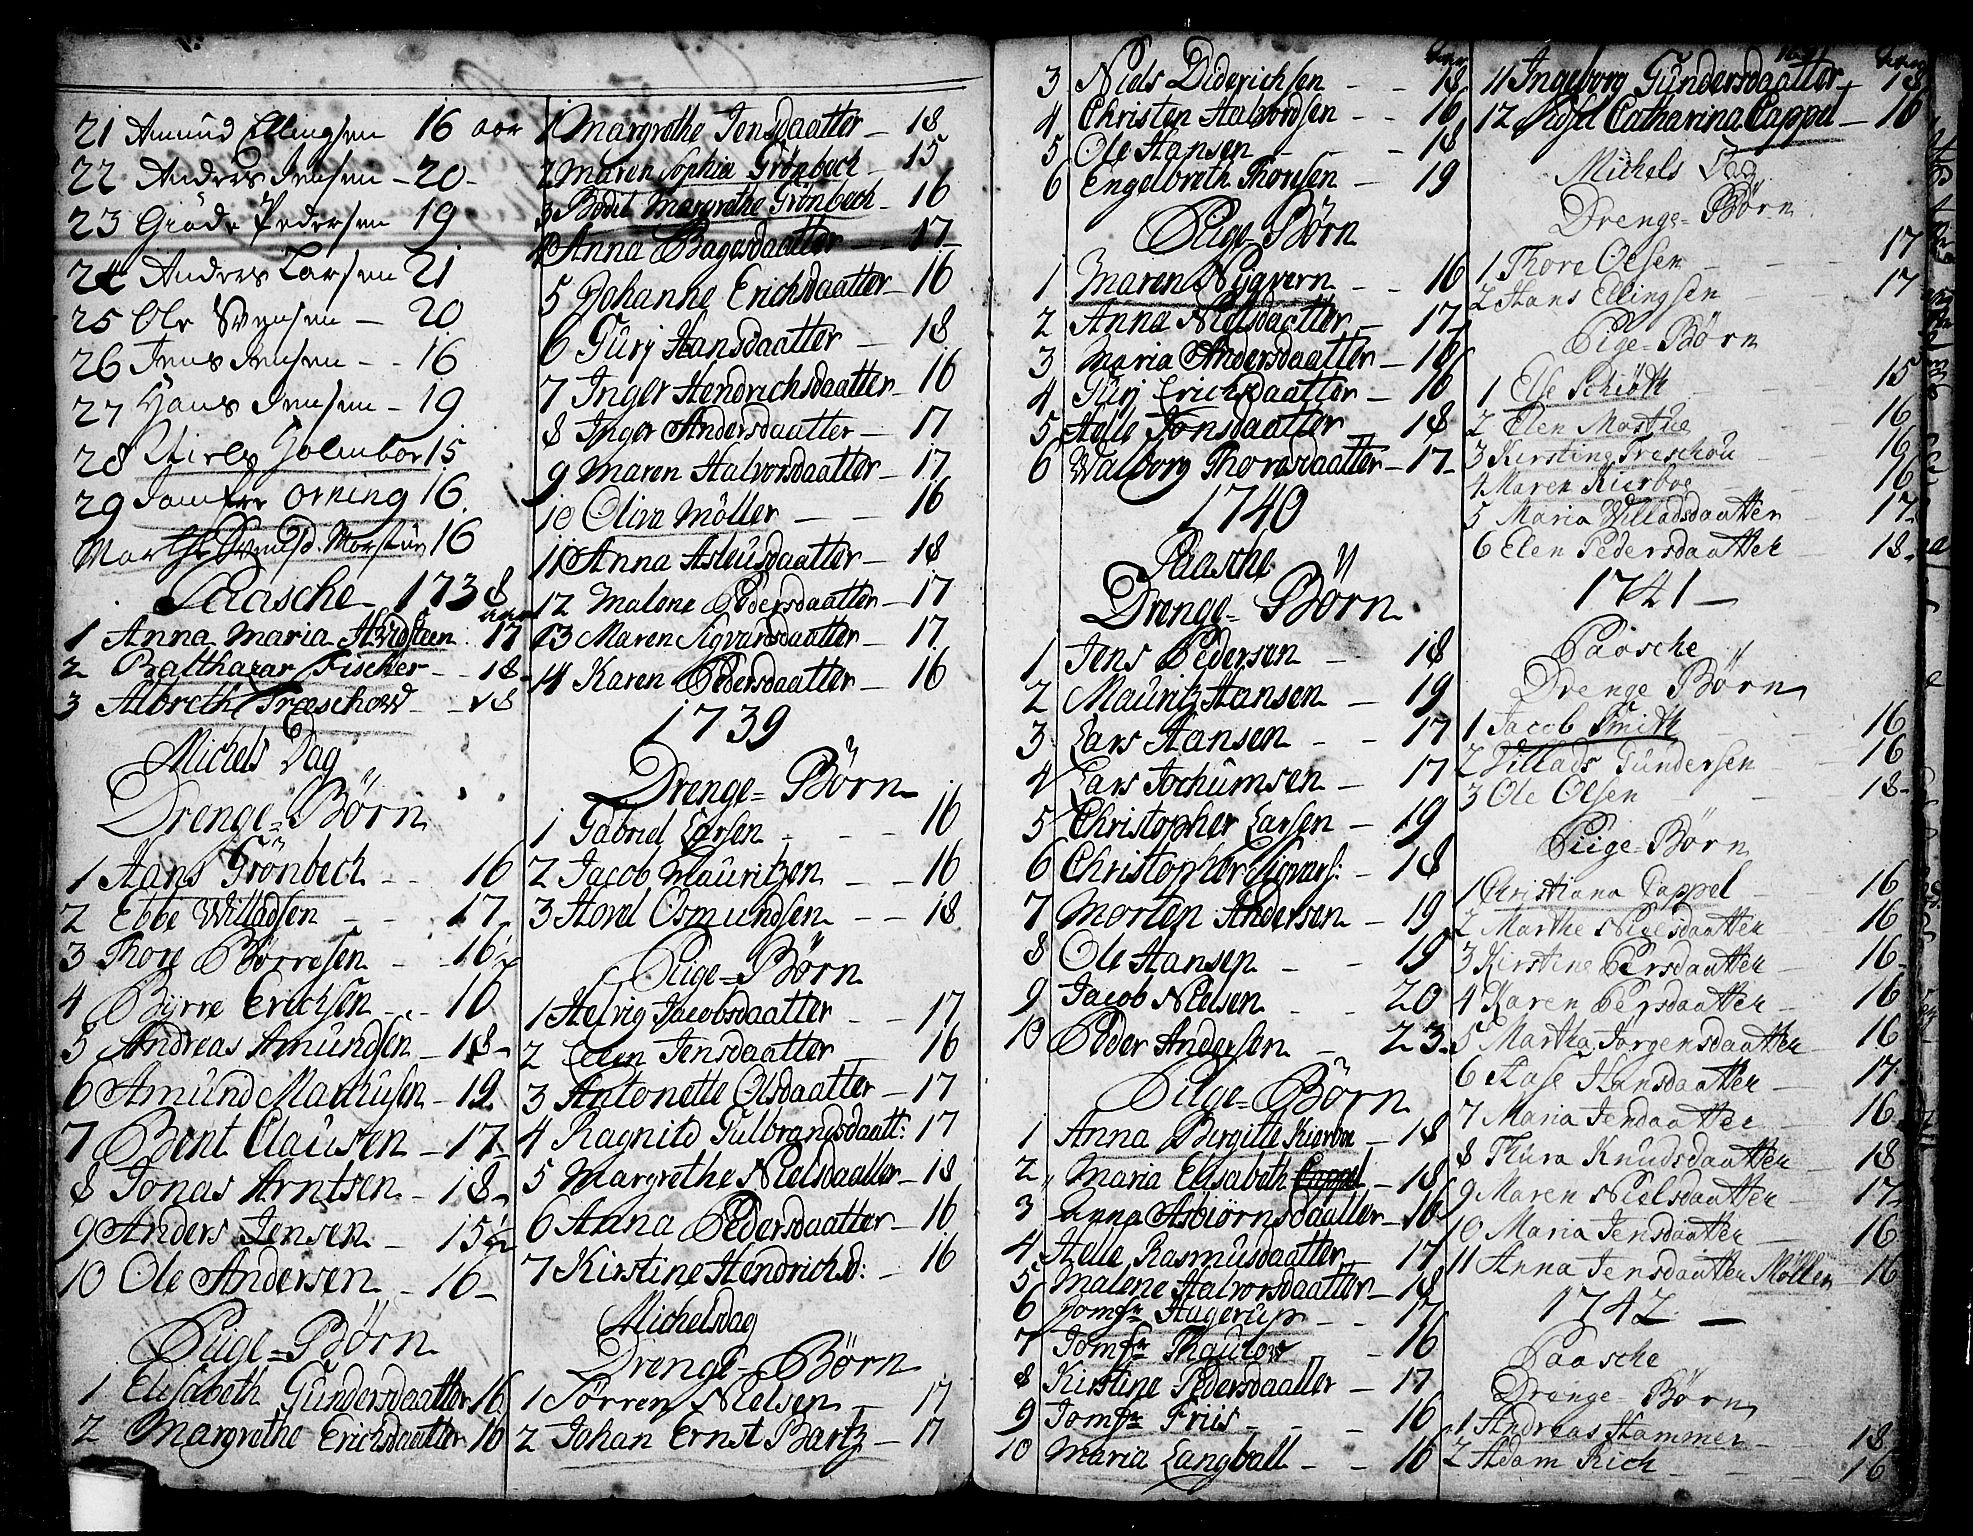 21 Amund Ellingsen 16 aar
22 Anders Jensen - 20 -
23 Giöde Pedersen 19
24 Anders Larsen 21
25 Ole Svensen - 20
26 Jens Jensen - - 16
27 Hans Jensen - 19
28 Niels Holmboe 15
29 Jomfrue Orning 16.
Marthe Svends d. Morstue 16
Paasche 1738
aar
1 Anna Maria Hvidsteen 17
2 Balthazar Fischer - 18 -
3 Albreth Træschow - - 18
Michels Dag
Drenge=Börn
1 Hans Grönbech - - 16
2 Ebbe Willadsen - - 17
3 Thore Börresen - - 16 1/2
4 Byrre Erichsen - - 16
5 Andreas Amundsen - 18 -
6 Amund Mathisen - 19
7 Bent Clausen - 17 -
8 Jonas Arntsen - 18 -
9 Anders Jensen - 15 1/2
10 Ole Andersen - 16 -
Piige=Börn
1 Elisabeth Gundersdaatter 16
2 Margrethe Erichsdaatter 16
1 Margrethe Jensdaatter - 18
2 Maren Sophia Grönbech - 15
3 Bodil Margrethe Grönbech - 16
4 Anna Bagesdaatter - 17
5 Johanne Erichsdaatter - 16
6 Gurj Hansdaatter - 18
7 Inger Hendrichsdaatter - 16
8 Inger Andersdaatter - 17
9 Maren Halvorsdaatter - 17
10 Oliva Möller - - 16
11 Anna Asleusdaatter - 18
12 Malene Pedersdaatter - 17
13 Maren Sigvardsdaatter - 17
14 Karen Pedersdaatter - 16
1739
Drenge=Börn
1 Gabriel Larsen - - - 16
2 Jacob Mauritzen - - 16
3 Hovel Osmundsen - - 18
Piige=Börn
1 Helvig Jacobsdaatter - - 17
2 Ellen Jensdaatter - 16
3 Antonette Olsdaatter - 17
4 Ragnild Gulbrandsdaatt: 17
5 Margrethe Nielsdaatter - 18
6 Anna Pedersdaatter - 16
7 Kirstine Hendrichsd: - 16
Michelsdag
Drenge=Börn
1 Sörren Nielsen - 17
2 Johan Ernst Bartz - 17
aar
3 Niels Diderichsen - - 18
4 Christen Halvordsen - - 16
5 Ole Hansen - - 18
6 Engelbreth Thoresen - 19
Piige Börn
1 Maren Nygvern - - 16
2 Anna Nielsdaatter - 17
3 Maria Andersdaatter - 16
4 Gurj Erichsdaatter - 16
5 Helle Jonsdaatter 18
6 Walborg Thoresdaatter - 17 -
1740
Paasche
Drenge=Börn
1 Jens Pedersen - 18
2 Mauritz Hansen - 19
3 Lars Hansen - - 17
4 Lars Jochumsen - 17
5 Christopher Larsen - 19
6 Christopher - 18
7 Morten Andersen - 19
8 Ole Hansen - - 19
9 Jacob Nielsen - - 20
10 Peder Andersen - 23
Piige=Börn
1 Anna Birgitte Kierboe - 18
2 Maria Elisabeth Cappel - 18
3 Anna Asbiörnsdaatter - 16
4 Helle Rasmusdaatter - 17
5 Malene Halvorsdaatter - 18
6 Jomfr Hagerup - - 17
7 Jomfr Thaulow - 16
8 Kirstine Pedersdaatter - 17
9 Jomfr Friis - - - 16
10 Maria Langball - - 16
aar
11 Ingeborg Gundersdaatter - 18
12 Sidsel Catharina Cappel - 16
Michels Dag
Drenge=Börn
1 Thore Olsen - - - 17
2 Hans Ellingsen 17
Piige=Börn
1 Else Schiöth - - 15
2 Elen Mostue - - - 16
3 Kirstine Treschou - - 16
4 Maren Kierboe - - - 16
5 Maria Villadsdaatter - 17
6 Elen Pedersdaatter - 18
1741 -
Paasche
Drenge Börn
1 Jacob Smith - - 16
2 Villads Gundersen - 16
3 Ole Olsen - - - 18 -
Piige=Börn
1 Christiana Cappel - - 16
2 Marthe Nielsdaatter - 16
3 Kirstine Persdaatter - 16
4 Karen Persdaatter - 16
5 Martha Jörgensdaatter 16
6 Aase Hansdaatter - 17
7 Maria Jensdaatter - 16
8 Thura Knudsdaatter - 18
9 Maren Nielsdaatter - 17
10 Maria Jensdaatter - 16
11 Anna Jensdaatter Möller 16
1742 -
Paasche
Drenge=Börn
1 Andreas Hammer - 18
2 Adam Rich - - - 16